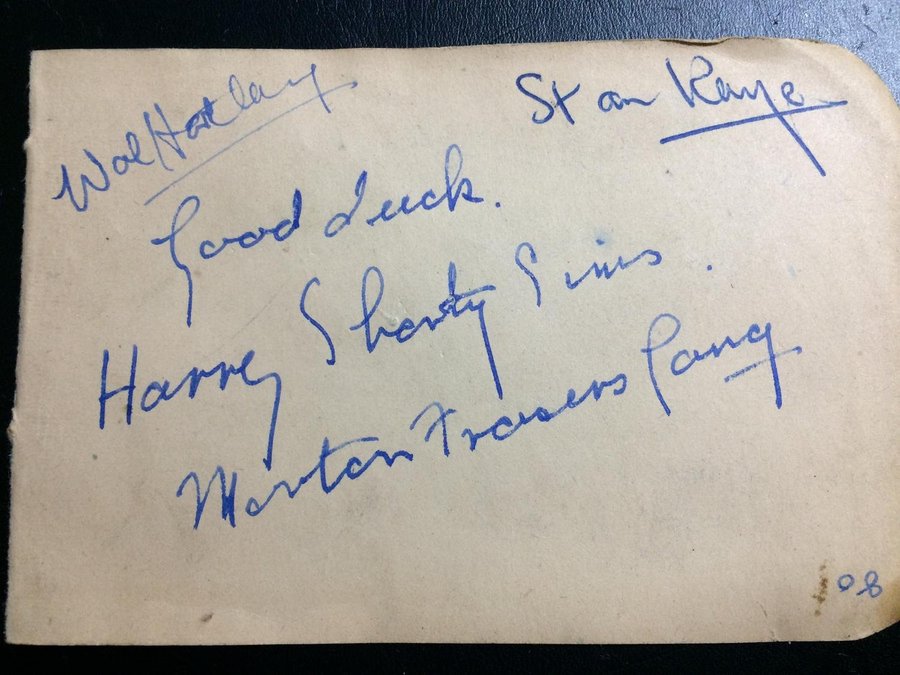 Wal Hartley
Stan Kaye
Good Luck.
Harry Shorty Sims.
Morton Frasers Gang
08